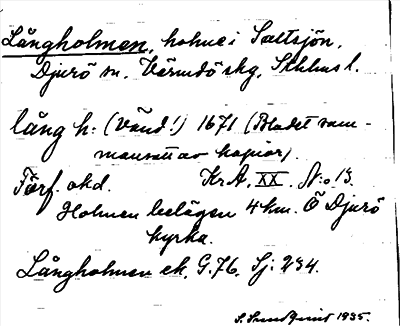 Långholmen, holme i Saltsjön,
Djurö sn. Värmdö skg, Sthlms l.
lång h: (Vänd!) 1671 (Bladet sam-
mansatt av kopior).
Förf. okd. Kr.A. XX. N:o 13.
Holmen belägen 4 km. Ö Djurö
kyrka.
Långholmen ek. G. 76. Sj: 234.
S. Sundqvist 1935.